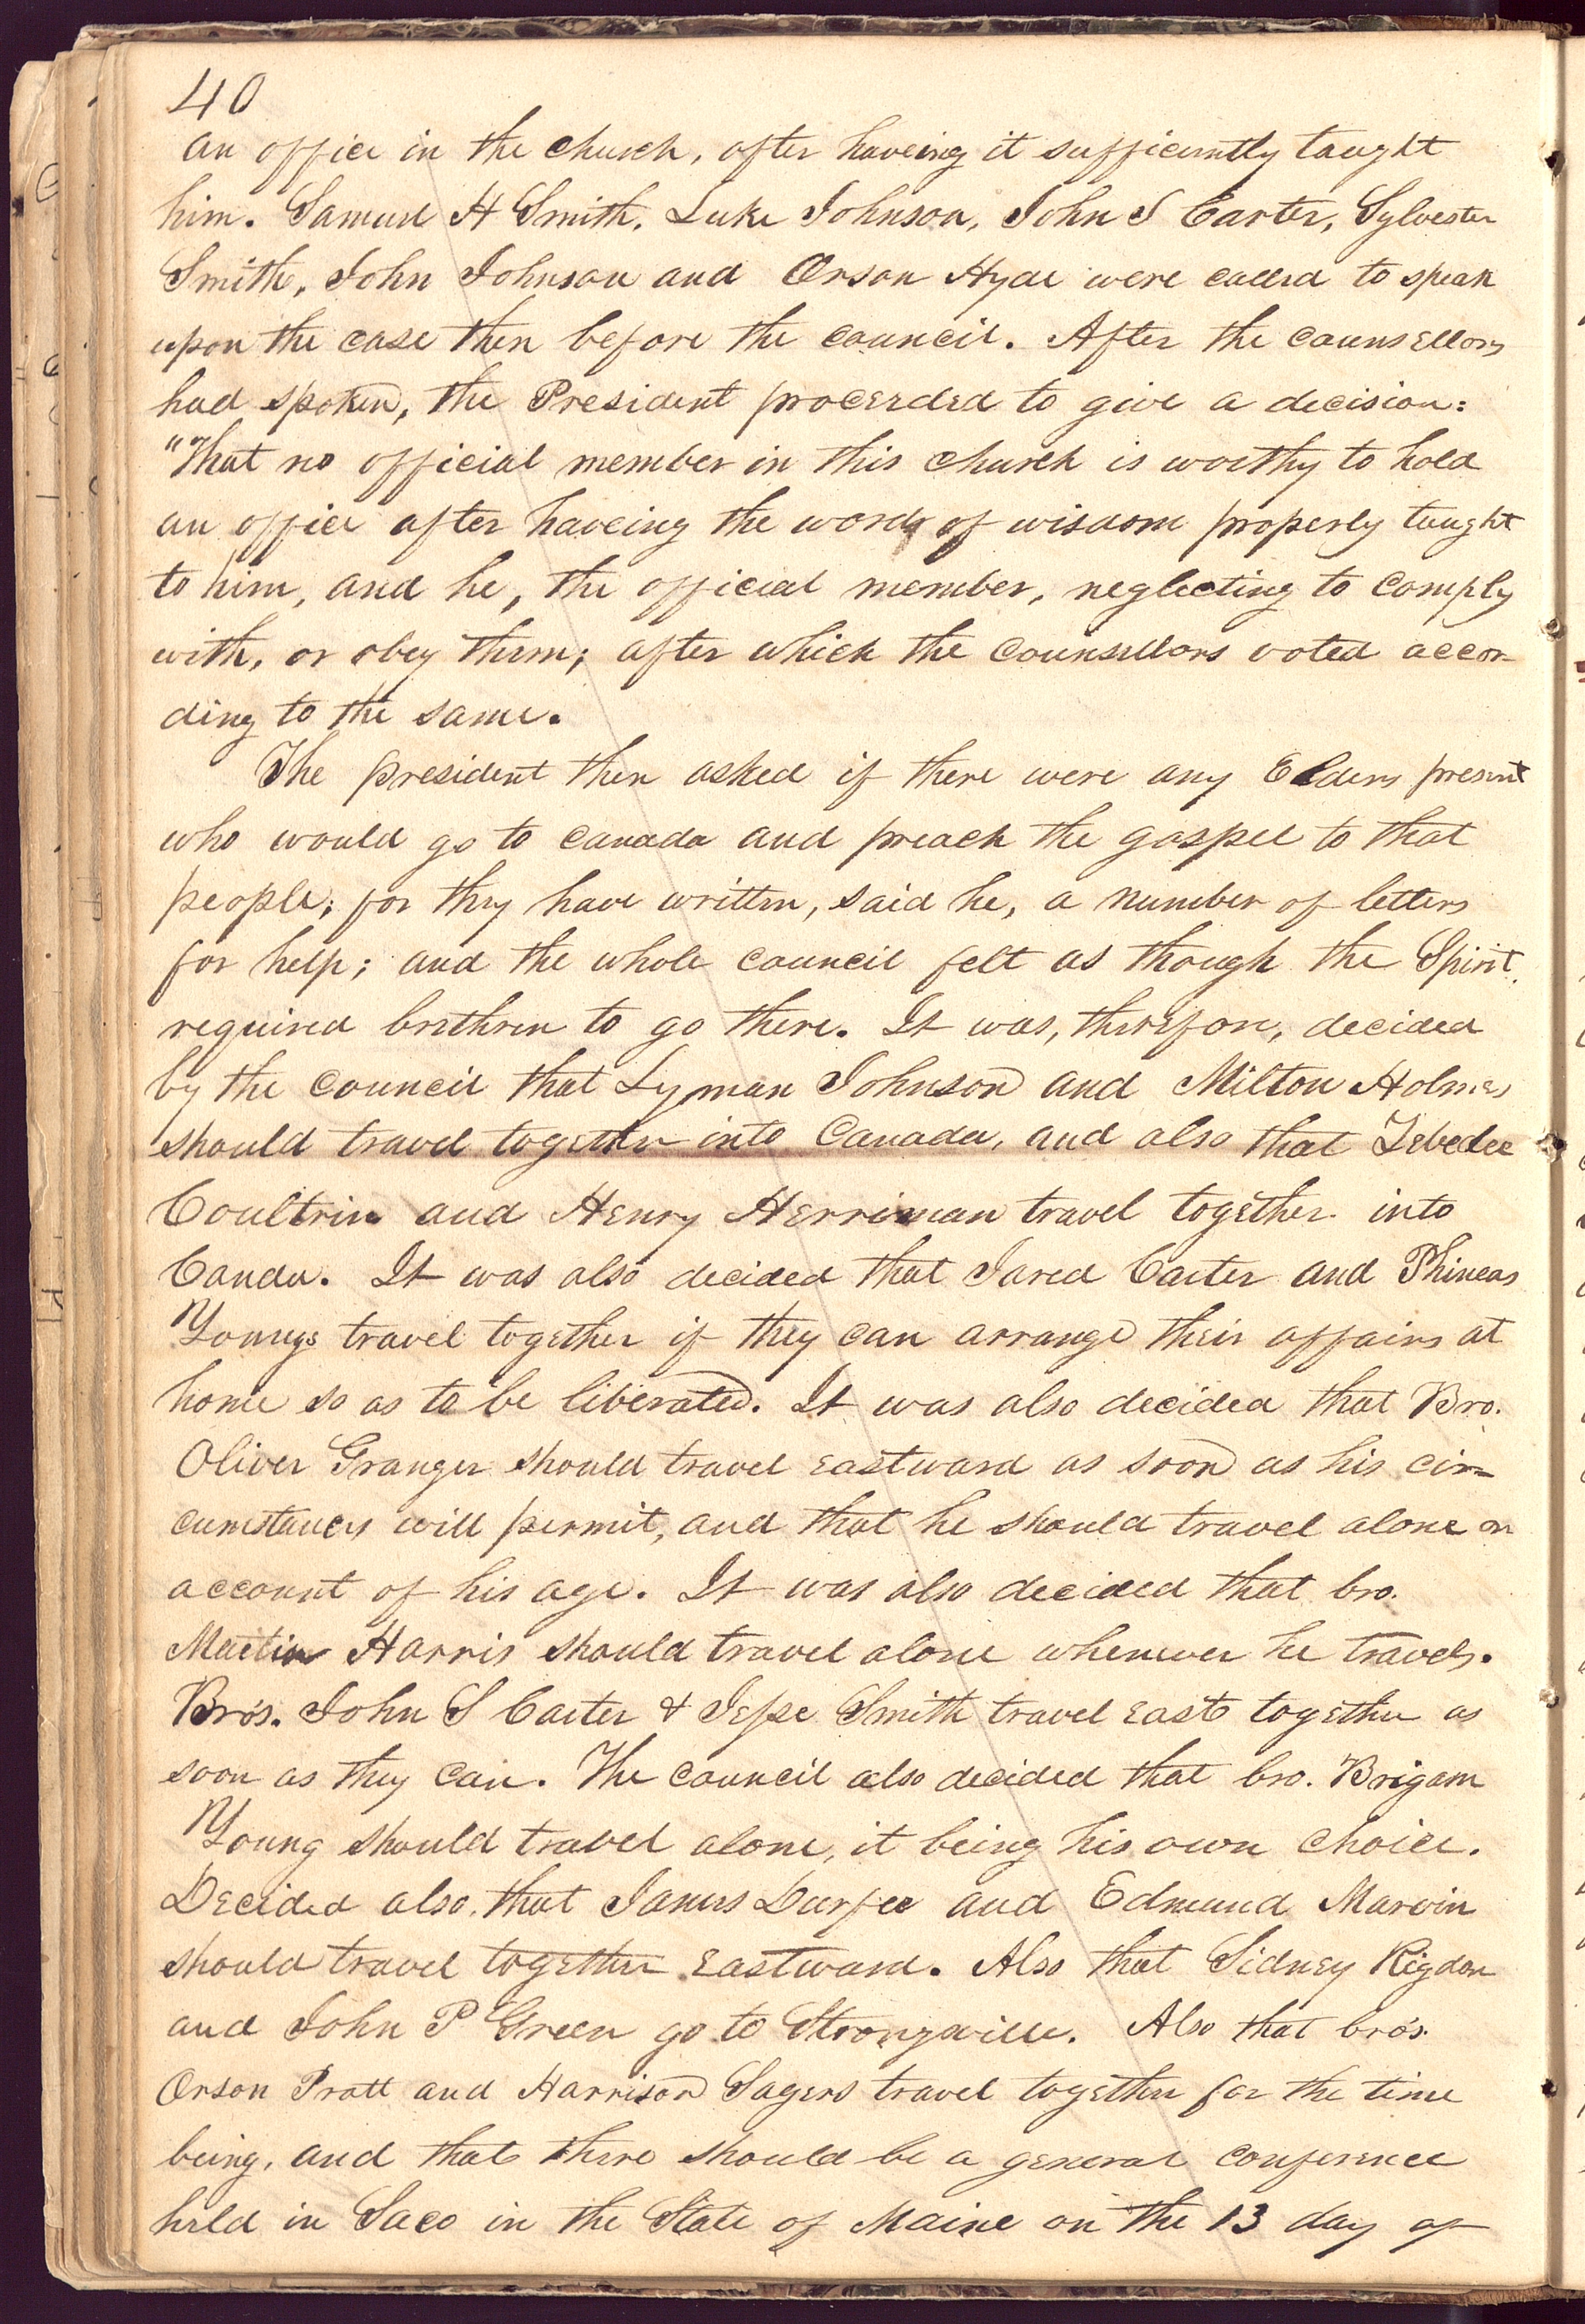 40
an office in the church, after haveing it sufficiently taught
him. Samuel H Smith, Luke Johnson, John S Carter, Sylvester
Smith, John Johnson and Orson Hyde were called to speak
upon the case then before the council. After the counsellors
had spoken, the President proceeded to give a decision:
"That no official member in this church is worthy to hold
an office after haveing the words of wisdom properly taught
to him, and he, the official member, neglecting to comply
with, or obey them; after which the counsellors voted accor-
ding to the same.
The president then asked if there were any Elders present
who would go to canada and preach the gospel to that
people; for they have written, said he, a number of letters
for help; and the whole council felt as though the Spirit
required brethren to go there. It was, therefore, decided
by the council that Lyman Johnson and Milton Holmes
should travel together into Canada, and also that Zebedee
Coultrin and Henry Herriman travel together into
Canda. It was also decided that Jared Carter and Phineas
Young travel together if they can arrange their affairs at
home so as to be liberated. It was also decided that Bro.
Oliver Granger should travel eastward as soon as his cir-
cumstances will permit, and that he should travel alone on
account of his age. It was also decided that bro.
Martin Harris should travel alone whenever he travels.
Bro's. John S Carter & Jesse Smith travel east together as
soon as they can. The council also decided that bro. Brigam
Young should travel alone, it being his own choice.
Decided also that James Durfee and Edmund Marvin
should travel together eastward. Also that Sidney Rigdon
and John P Green go to Strongsville. Also that bro's.
Orson Pratt and Harrison Sagers travel together for the time
being, and that there should be a general conference
held in Saco in the State of Maine on the 13 day of